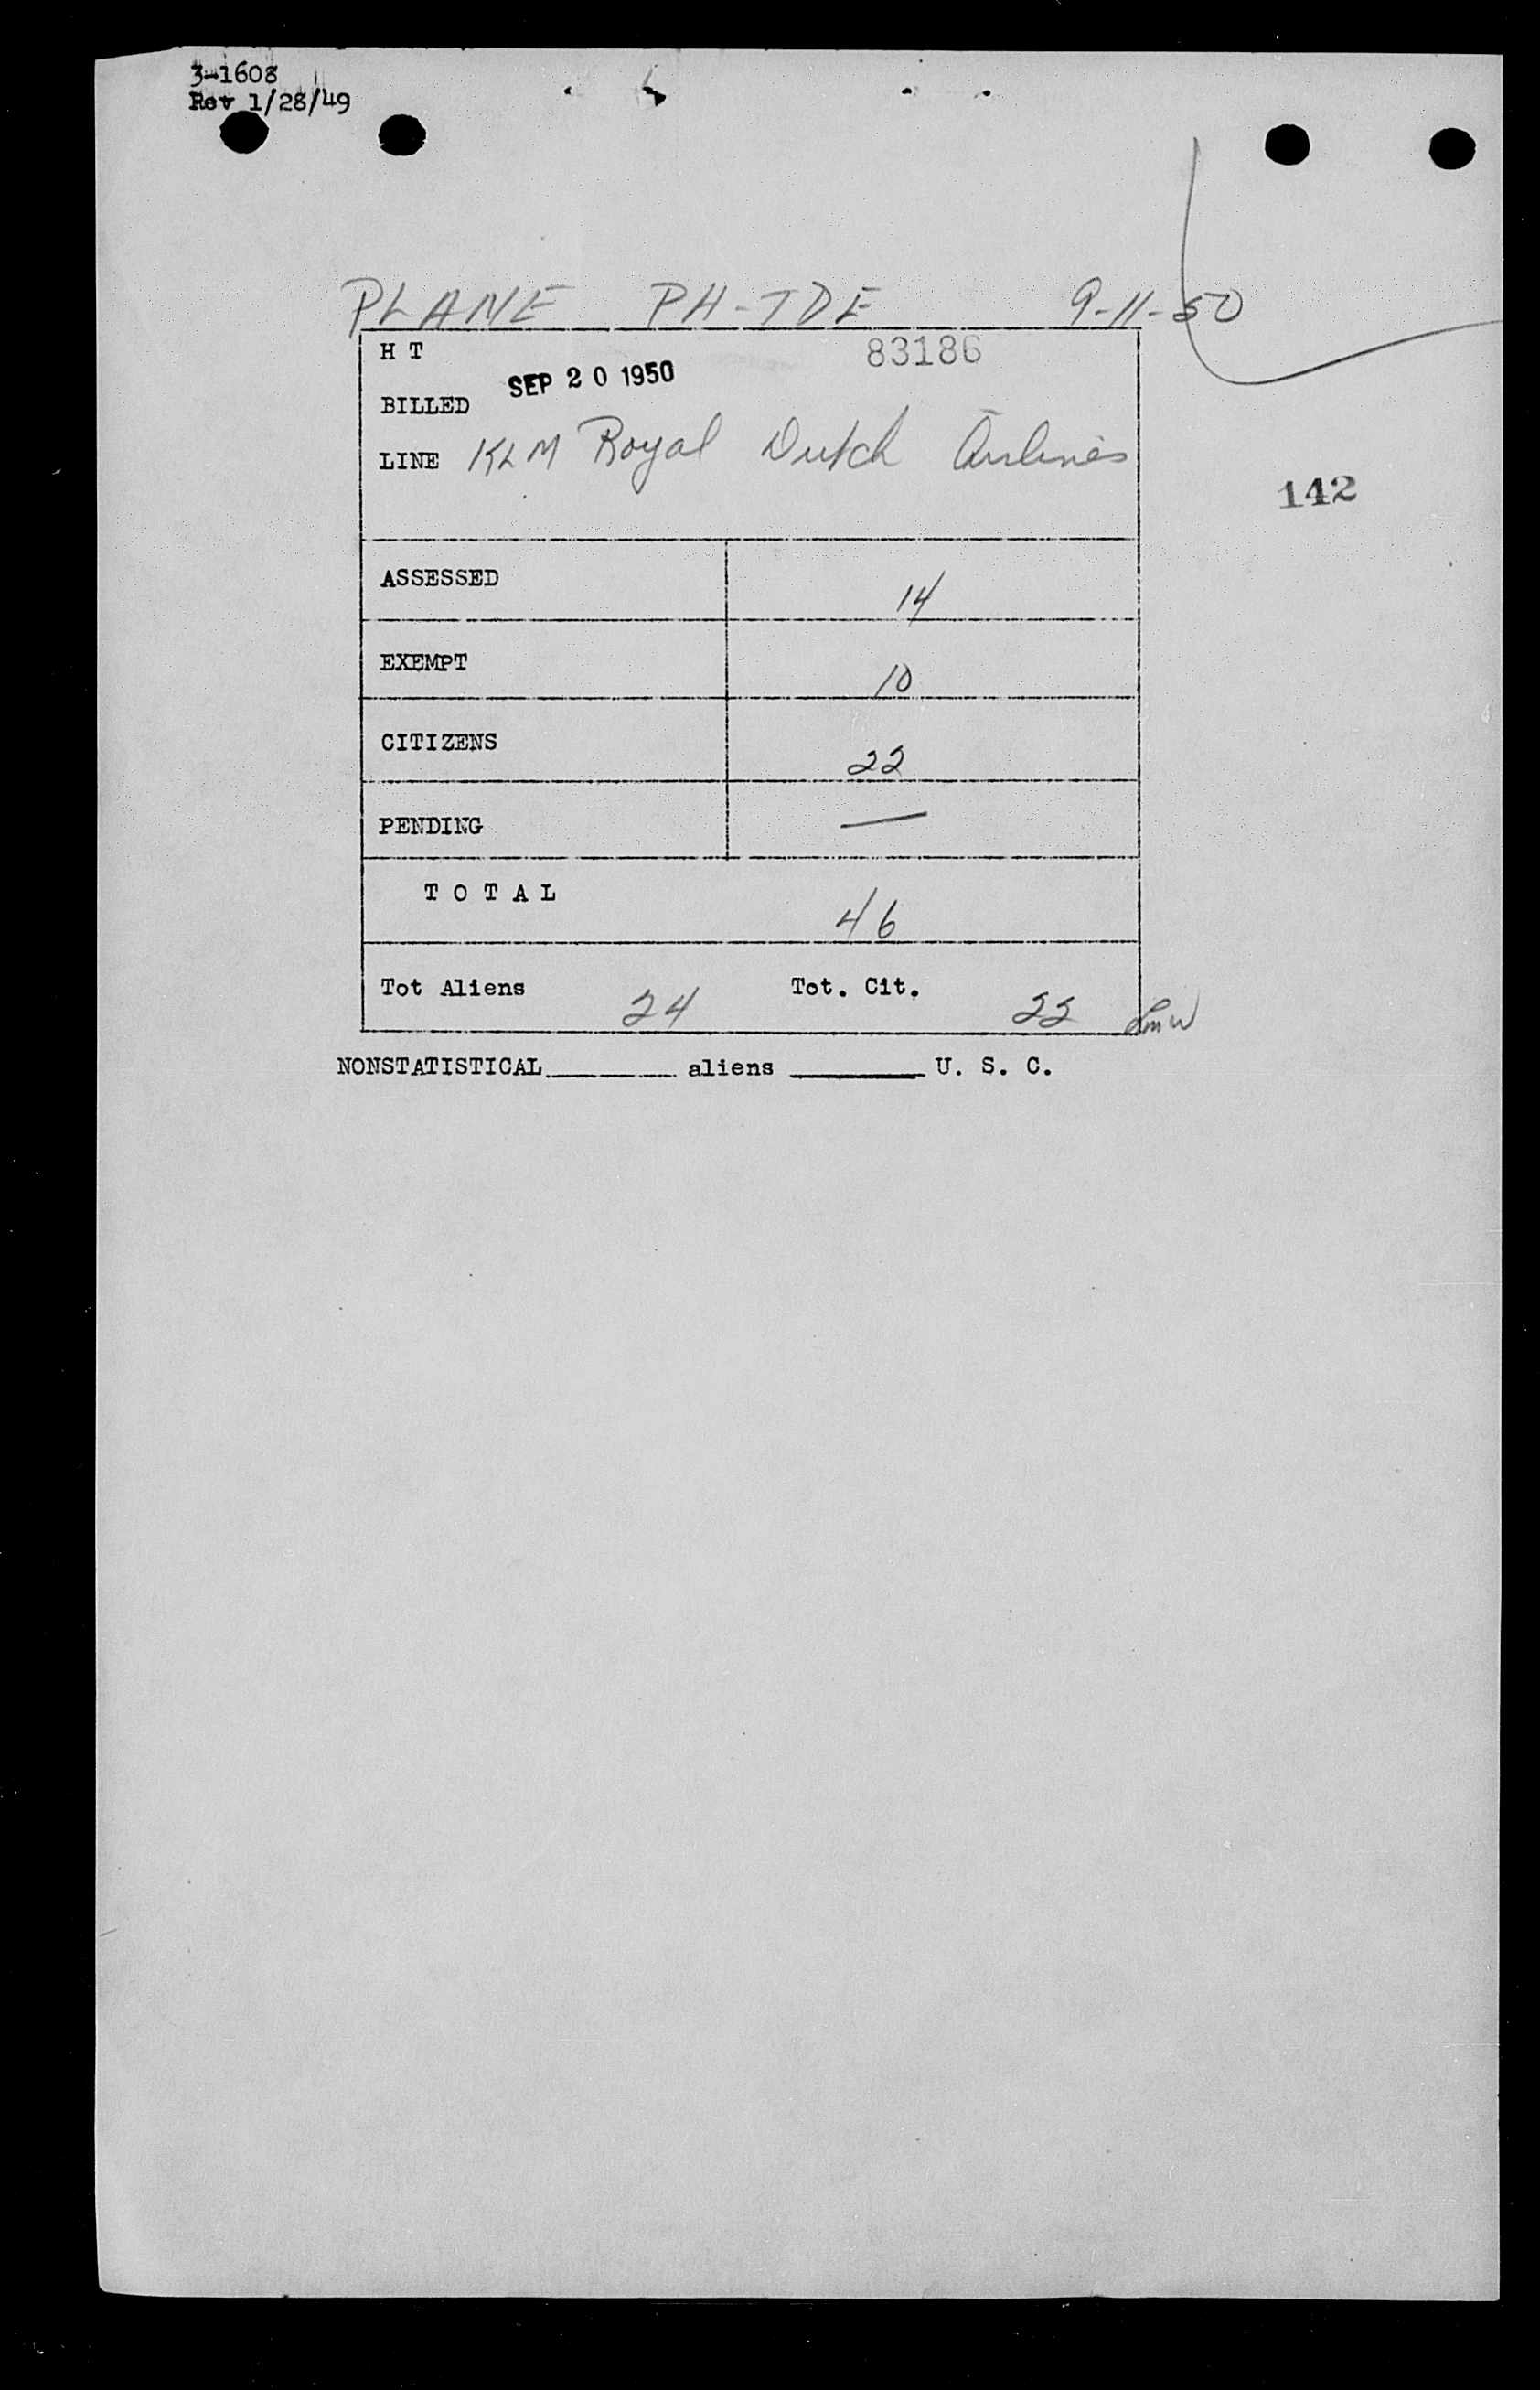 3-1608
Rev 1/28/49
PLANE PH-TDE 9-11-50
H T 83186
SEP 20 1950
BILLED
LINE KLM Royal Dutch Airlines
142
ASSESSED 14
EXEMPT 10
CITIZENS 22
PENDING —
T O T A L 46
Tot Aliens 24 Tot. Cit. 22 Lmw
NONSTATISTICAL______ aliens ______ U. S. C.